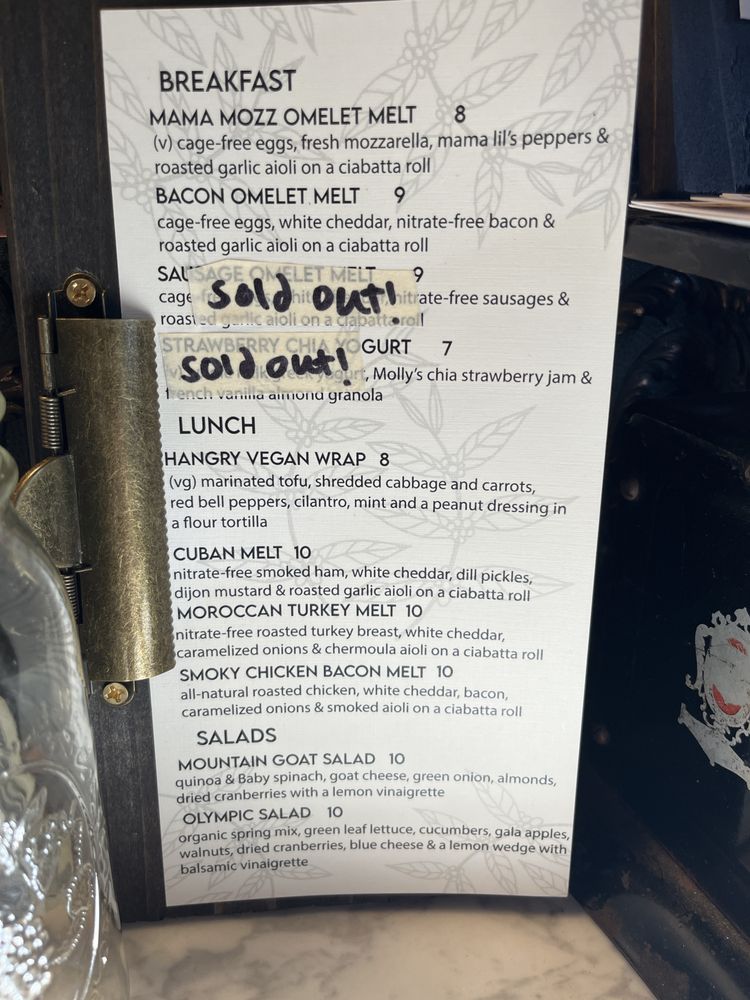 BREAKFAST
MAMA MOZZ OMELET MELT 8
(v) cage-free eggs, fresh mozzarella, mama lil's peppers &
roasted garlic aioli on a ciabatta roll
BACON OMELET MELT 9
cage-free eggs, white cheddar, nitrate-free bacon &
roasted garlic aioli on a ciabatta roll
SAUSAGE OMELET MELT 9
sold out!
cage nitrate-free sausages &
roasted garlic aioli on a ciabatta roll
STRAWBERRY CHIA YOGURT 7
sold out!
yogurt, Molly's chia strawberry jam &
french vanilla almond granola
LUNCH
HANGRY VEGAN WRAP 8
(vg) marinated tofu, shredded cabbage and carrots,
red bell peppers, cilantro, mint and a peanut dressing in
a flour tortilla
CUBAN MELT 10
nitrate-free smoked ham, white cheddar, dill pickles,
dijon mustard & roasted garlic aioli on a ciabatta roll
MOROCCAN TURKEY MELT 10
nitrate-free roasted turkey breast, white cheddar,
caramelized onions & chermoula aioli on a ciabatta roll
SMOKY CHICKEN BACON MELT 10
all-natural roasted chicken, white cheddar, bacon,
caramelized onions & smoked aioli on a ciabatta roll
SALADS
MOUNTAIN GOAT SALAD 10
quinoa & Baby spinach, goat cheese, green onion, almonds,
dried cranberries with a lemon vinaigrette
OLYMPIC SALAD 10
organic spring mix, green leaf lettuce, cucumbers, gala apples,
walnuts, dried cranberries, blue cheese & a lemon wedge with
balsamic vinaigrette